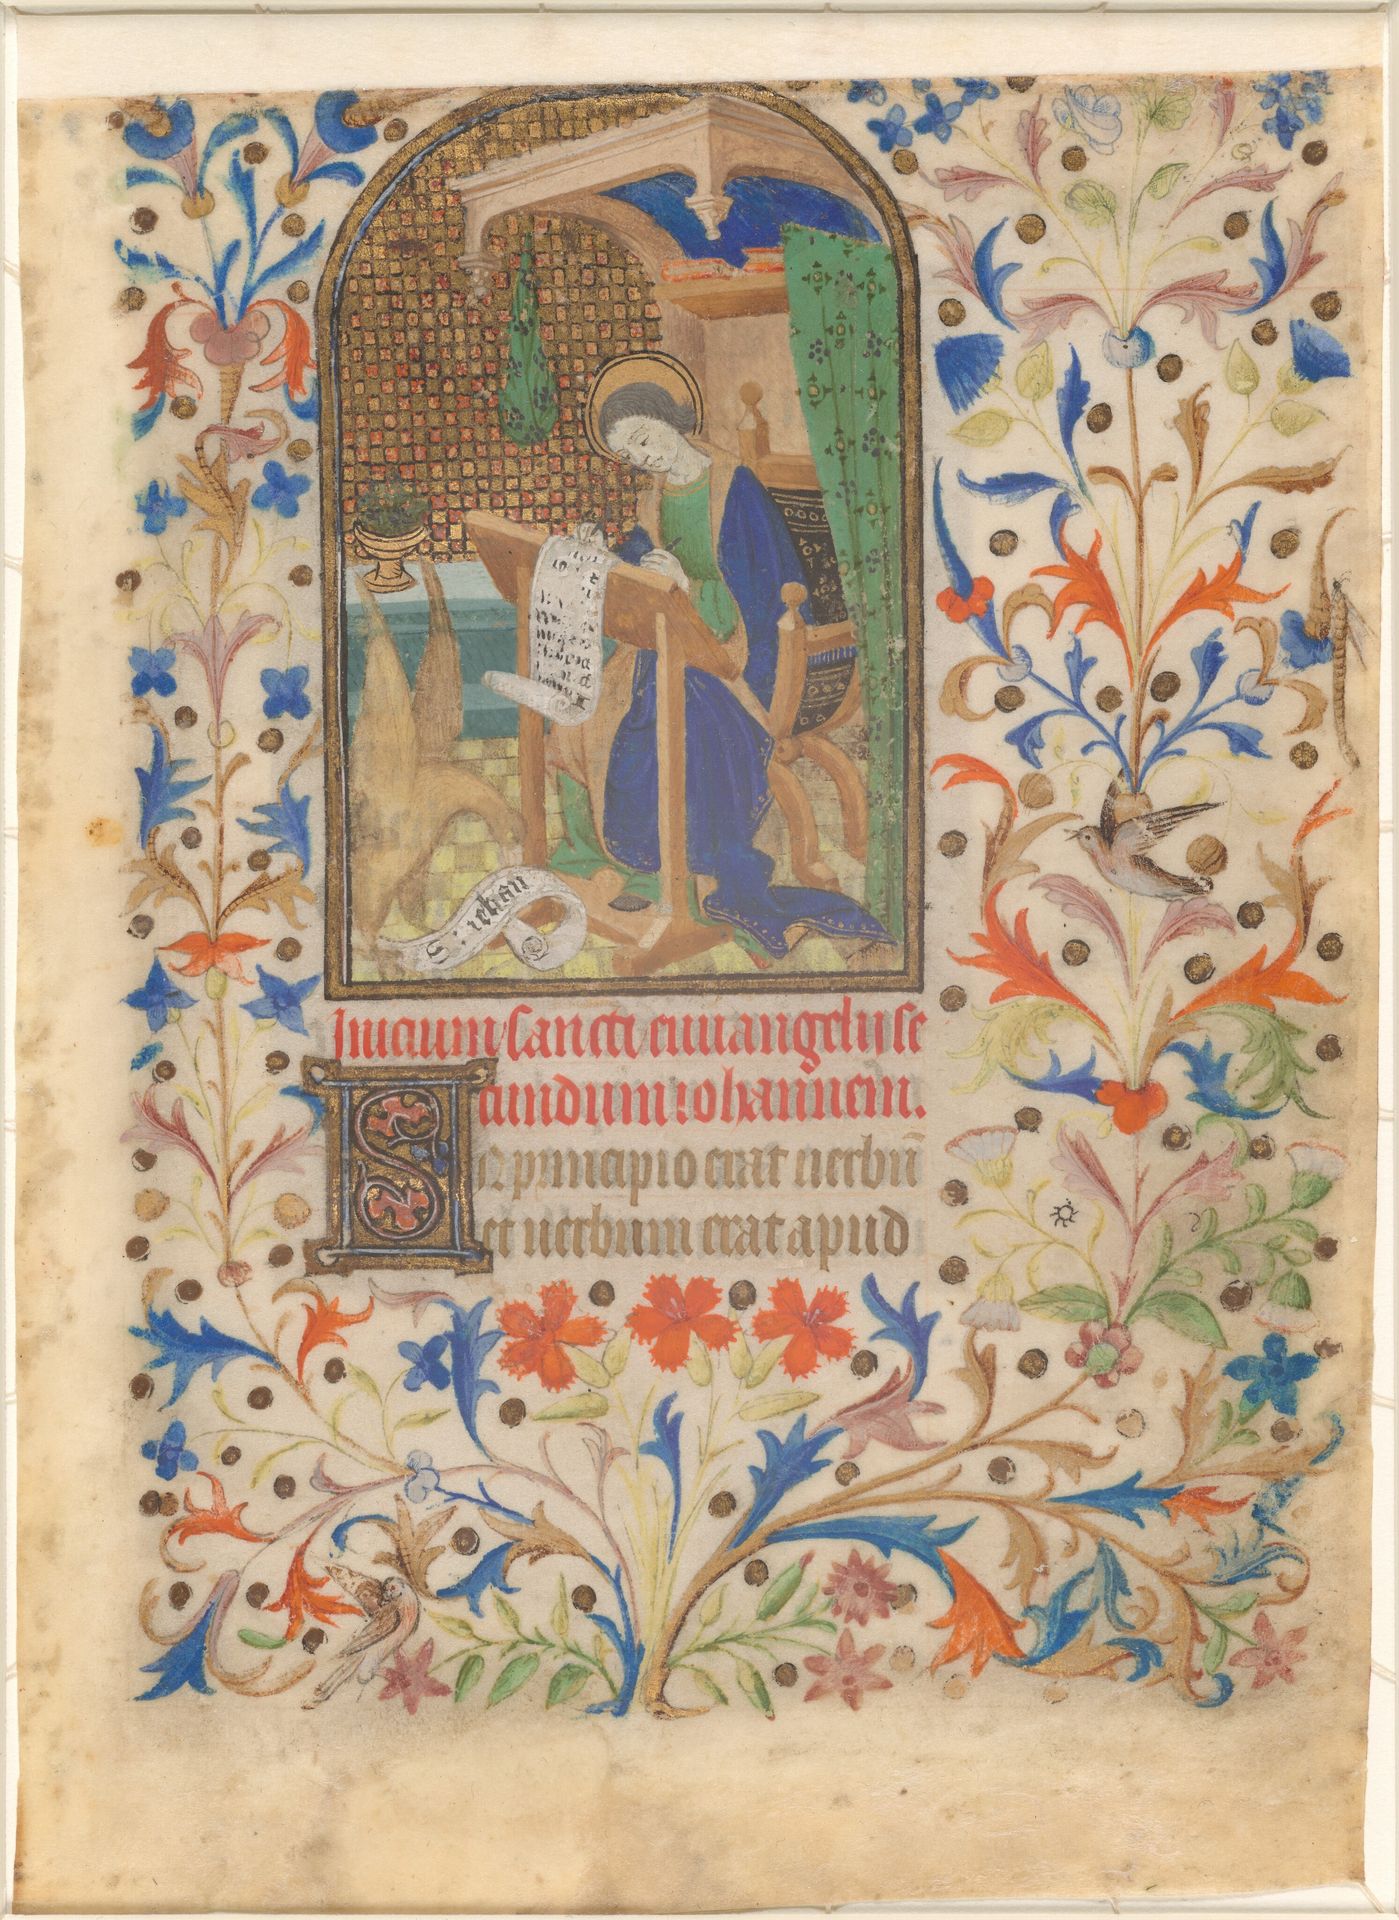 S : iehan
Inicium sancti euuangelii se
cundum iohannem.
IN principio erat uerbū
et uerbum erat apud